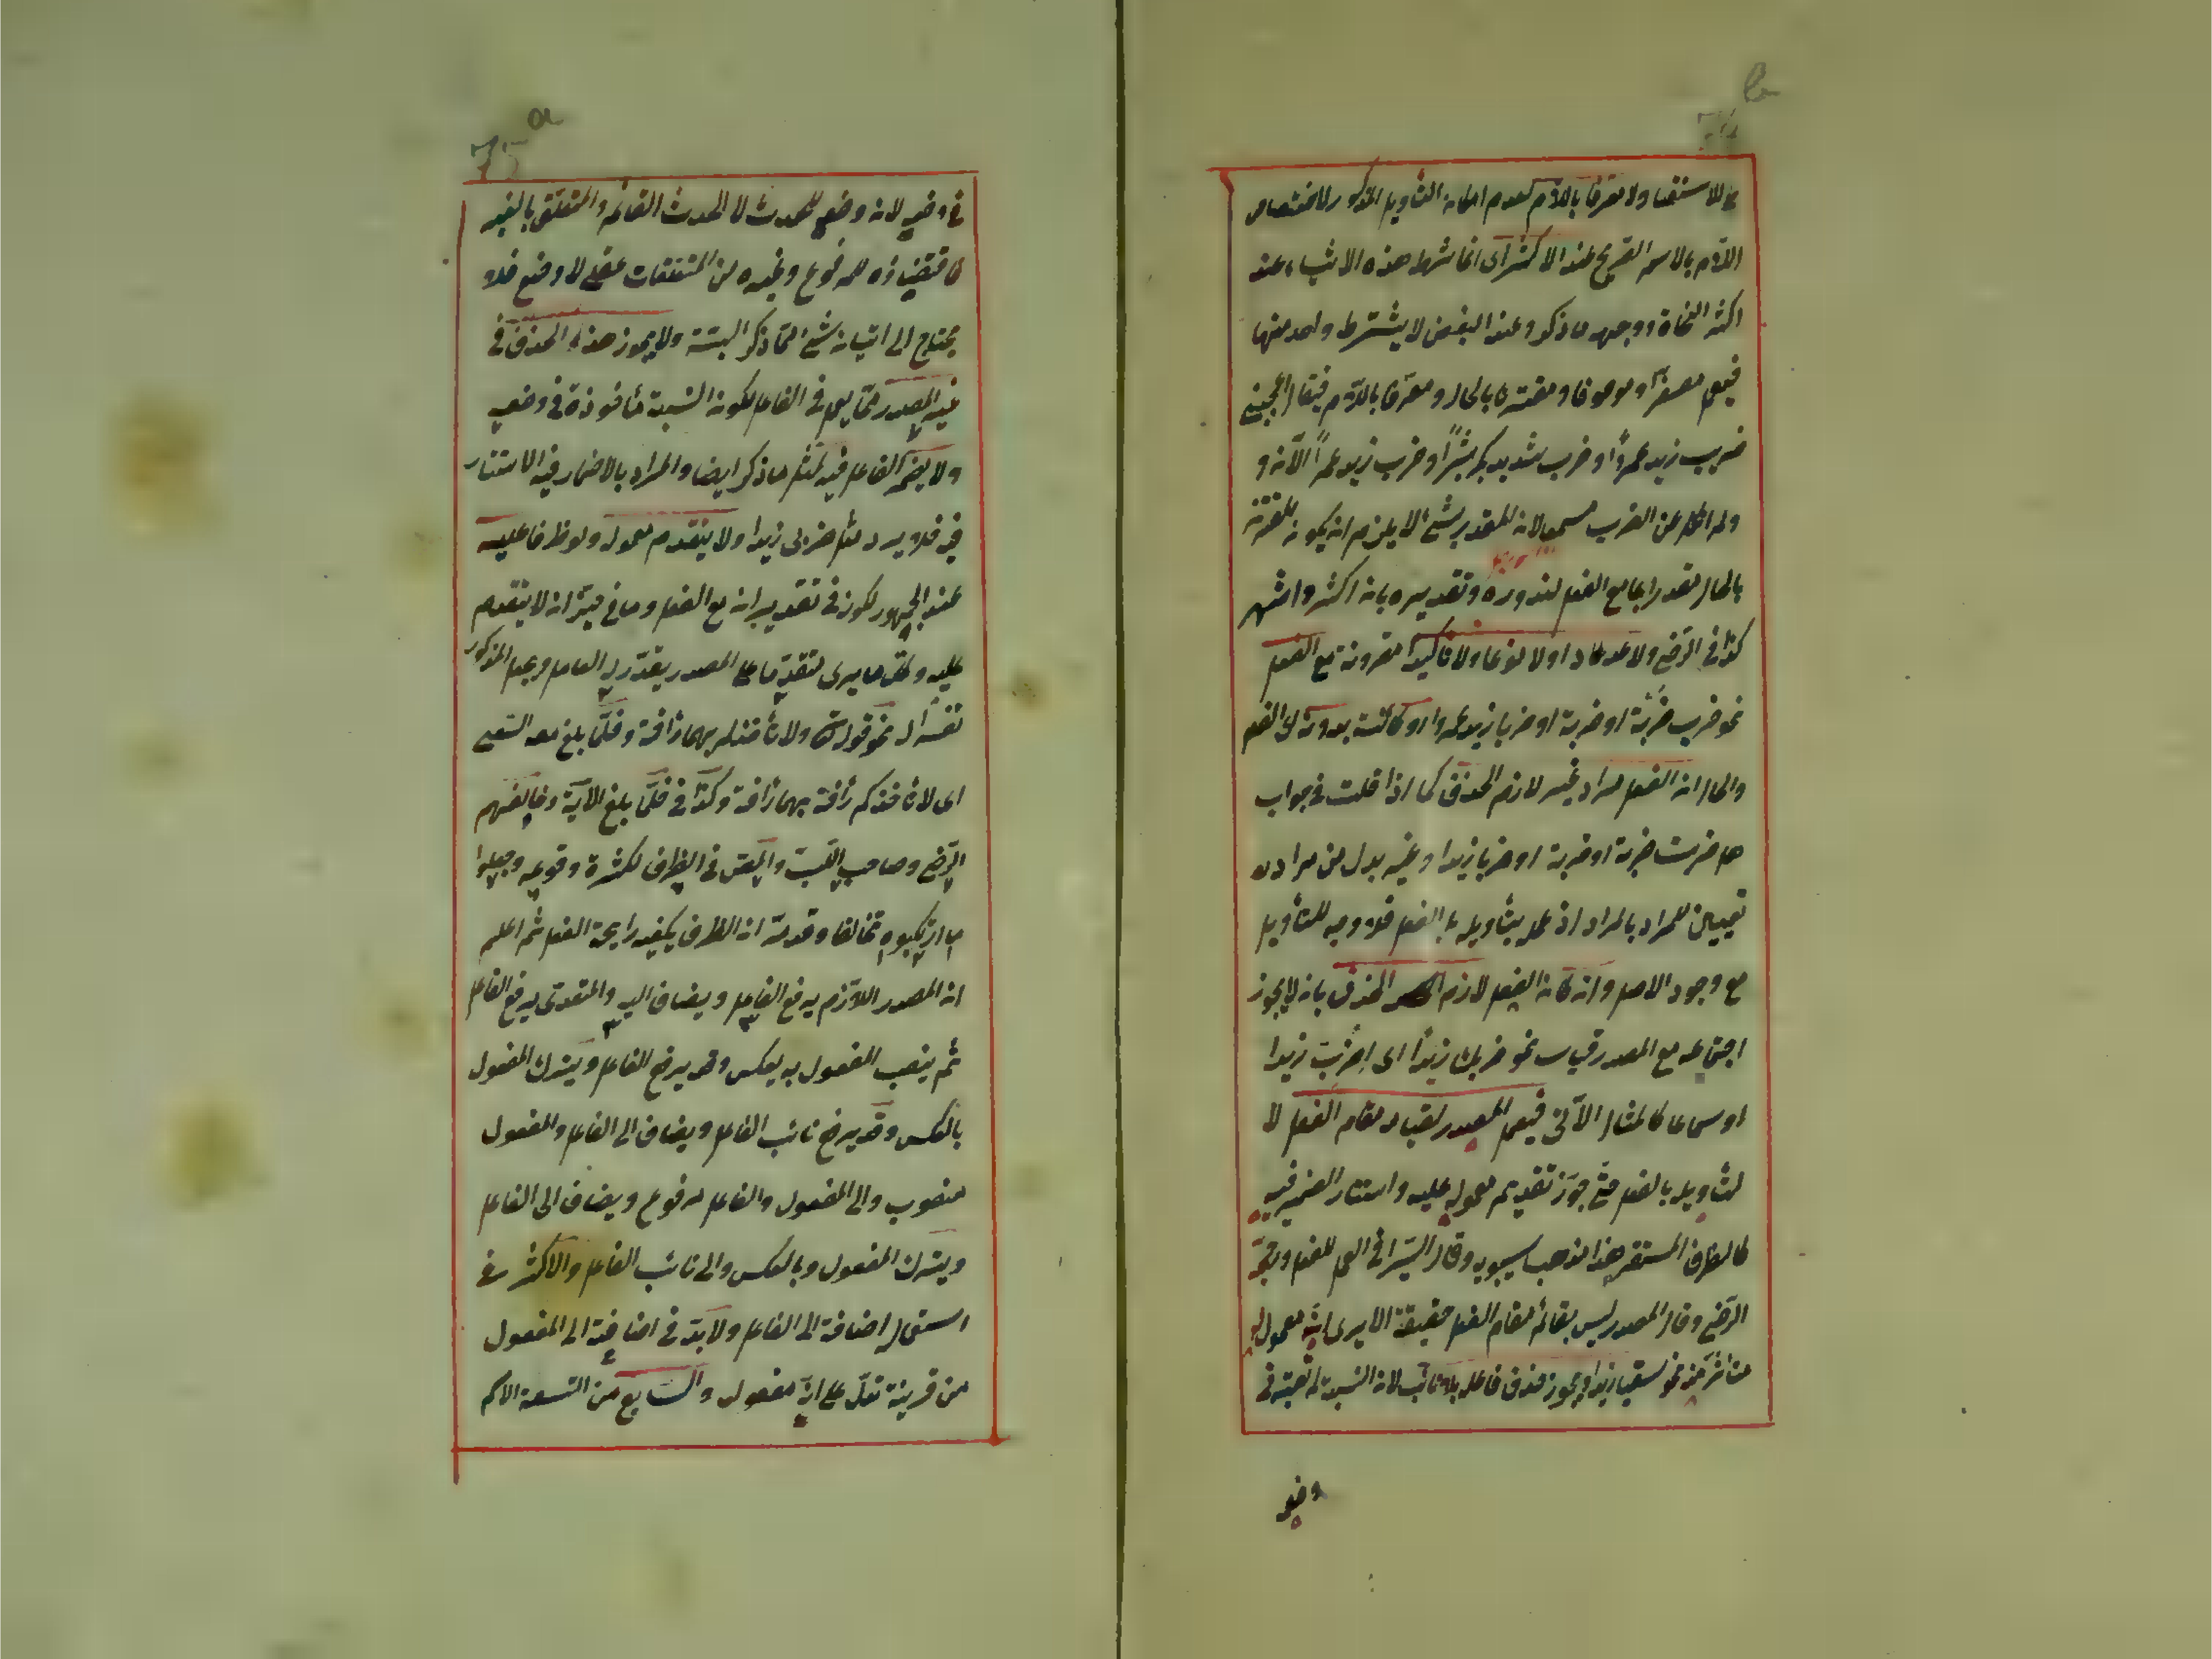 b
74
للاستقبال ولا معرفا باللام لعدم امكان التأويل المذكور للاختصاص
اللام بالاسم الصريح عند الاكثر اى انما شرط هذه الاشياء عند
اكثر النحاة ووجهه ما ذكر وعند البعض لا يشترط واحد منها
فيعمل مصغرا وموصوفا ومقترنا بالحال ومعرفا باللام فيقال اعجبنى
ضريب زيد عمروًا او ضرب شديد بكر بشرًا او ضرب زيد عمرًا الآن و
بالحال تقدير ما مع الفعل لندوره وتقديره بان اكثر واشهر
كذا فى الرضى ولا عددا ولا نوعا ولا تأكيدا مقرونة مع الفعل
نحو ضرب ضَربة او ضربة او ضربا زيد عمروا او كانت بدونه اى الفعل
والحال ان الفعل مراد غير لازم الحذف كما اذا قلت فى جواب
هل ضربت ضربة او ضربة او ضربا زيدا وغير بدل من مراد
تعيين للمراد بالمراد اذ عمله بتأويله بالفعل فلا وجه للتأويل
مع وجود الاصل وان كان الفعل لازم الحذف بان لا يجوز
اجتماعه مع المصدر قياسا نحو ضربك زيدًا اى اضرب زيدا
او سماعا كالمثال الآتى فيعمل المصدر لقيامه مقام الفعل لا
لتأويله بالفعل حتى جوز تقديم معموله عليه واستتار الضمير فيه
كالظرف المستقر هذا مذهب سيبويه وقال السيرافى العمل للفعل وتبعه
الرضى وقال المصدر ليس بقائم مقام الفعل حقيقة الا يرى انه معموله
متأخر عنه نحو سقيا زيدا ويجوز حذف فاعله بلا نائب لان النسبة لم تعتبر فى
وضعه
a
75
فى وضعه لانه وضع للحدث لا الحدث القائم والمتعلق بالغير
فاقتضاؤه للمرفوع وغيره من المتعلقات عقلى لا وضعى فلا
يحتاج الى اتيان شئ مما ذكر البتة ولا يجوز هذا الحذف فى
غير المصدر مما يعمل فى الفاعل لكون النسبة مأخوذة فى وضعه
ولا يضمر الفاعل فيه لمثل ما ذكر ايضا والمراد بالاضمار فيه الاستتار
فيه فلا يرد مثل ضربى زيدا ولا يتقدم معموله ولو ظرفا عليه
عند الجمهور لكونه فى تقدير ان مع الفعل وما فى حيز ان لا يتقدم
عليه وكل ما يرى تقديما على المصدر يقدر له العامل ويجعل المذكور
تفسيرا له نحو قوله تع ولا تأخذكم بهما رأفة وفلما بلغ معه السعى
اى لا تأخذكم رأفة بهما رأفة وكذا فى فلما بلغ الآية وخالفهم
الرضى وصاحب اللب والبعض فى الظرف لكثرة وقوعه وجعلوا
ما ارتكبوه تخالفا وقد مر ان الظرف يكفيه رايحة الفعل ثم اعلم
ان المصدر اللازم يرفع الفاعل ويضاف اليه والمتعدى يرفع الفاعل
ثم ينصب المفعول به وبعكس وقد يرفع الفاعل ويترك المفعول
بالعكس وقد يرفع نائب الفاعل ويضاف الى الفاعل والمفعول
منصوب والى المفعول والفاعل مرفوع ويضاف الى الفاعل
ويترك المفعول وبالعكس والى نائب الفاعل والاكثر فى
استعماله اضافة الى الفاعل ولا بد فى اضافته الى المفعول
من قرينة تدل على انه مفعول والسابع من التسعة الاسم